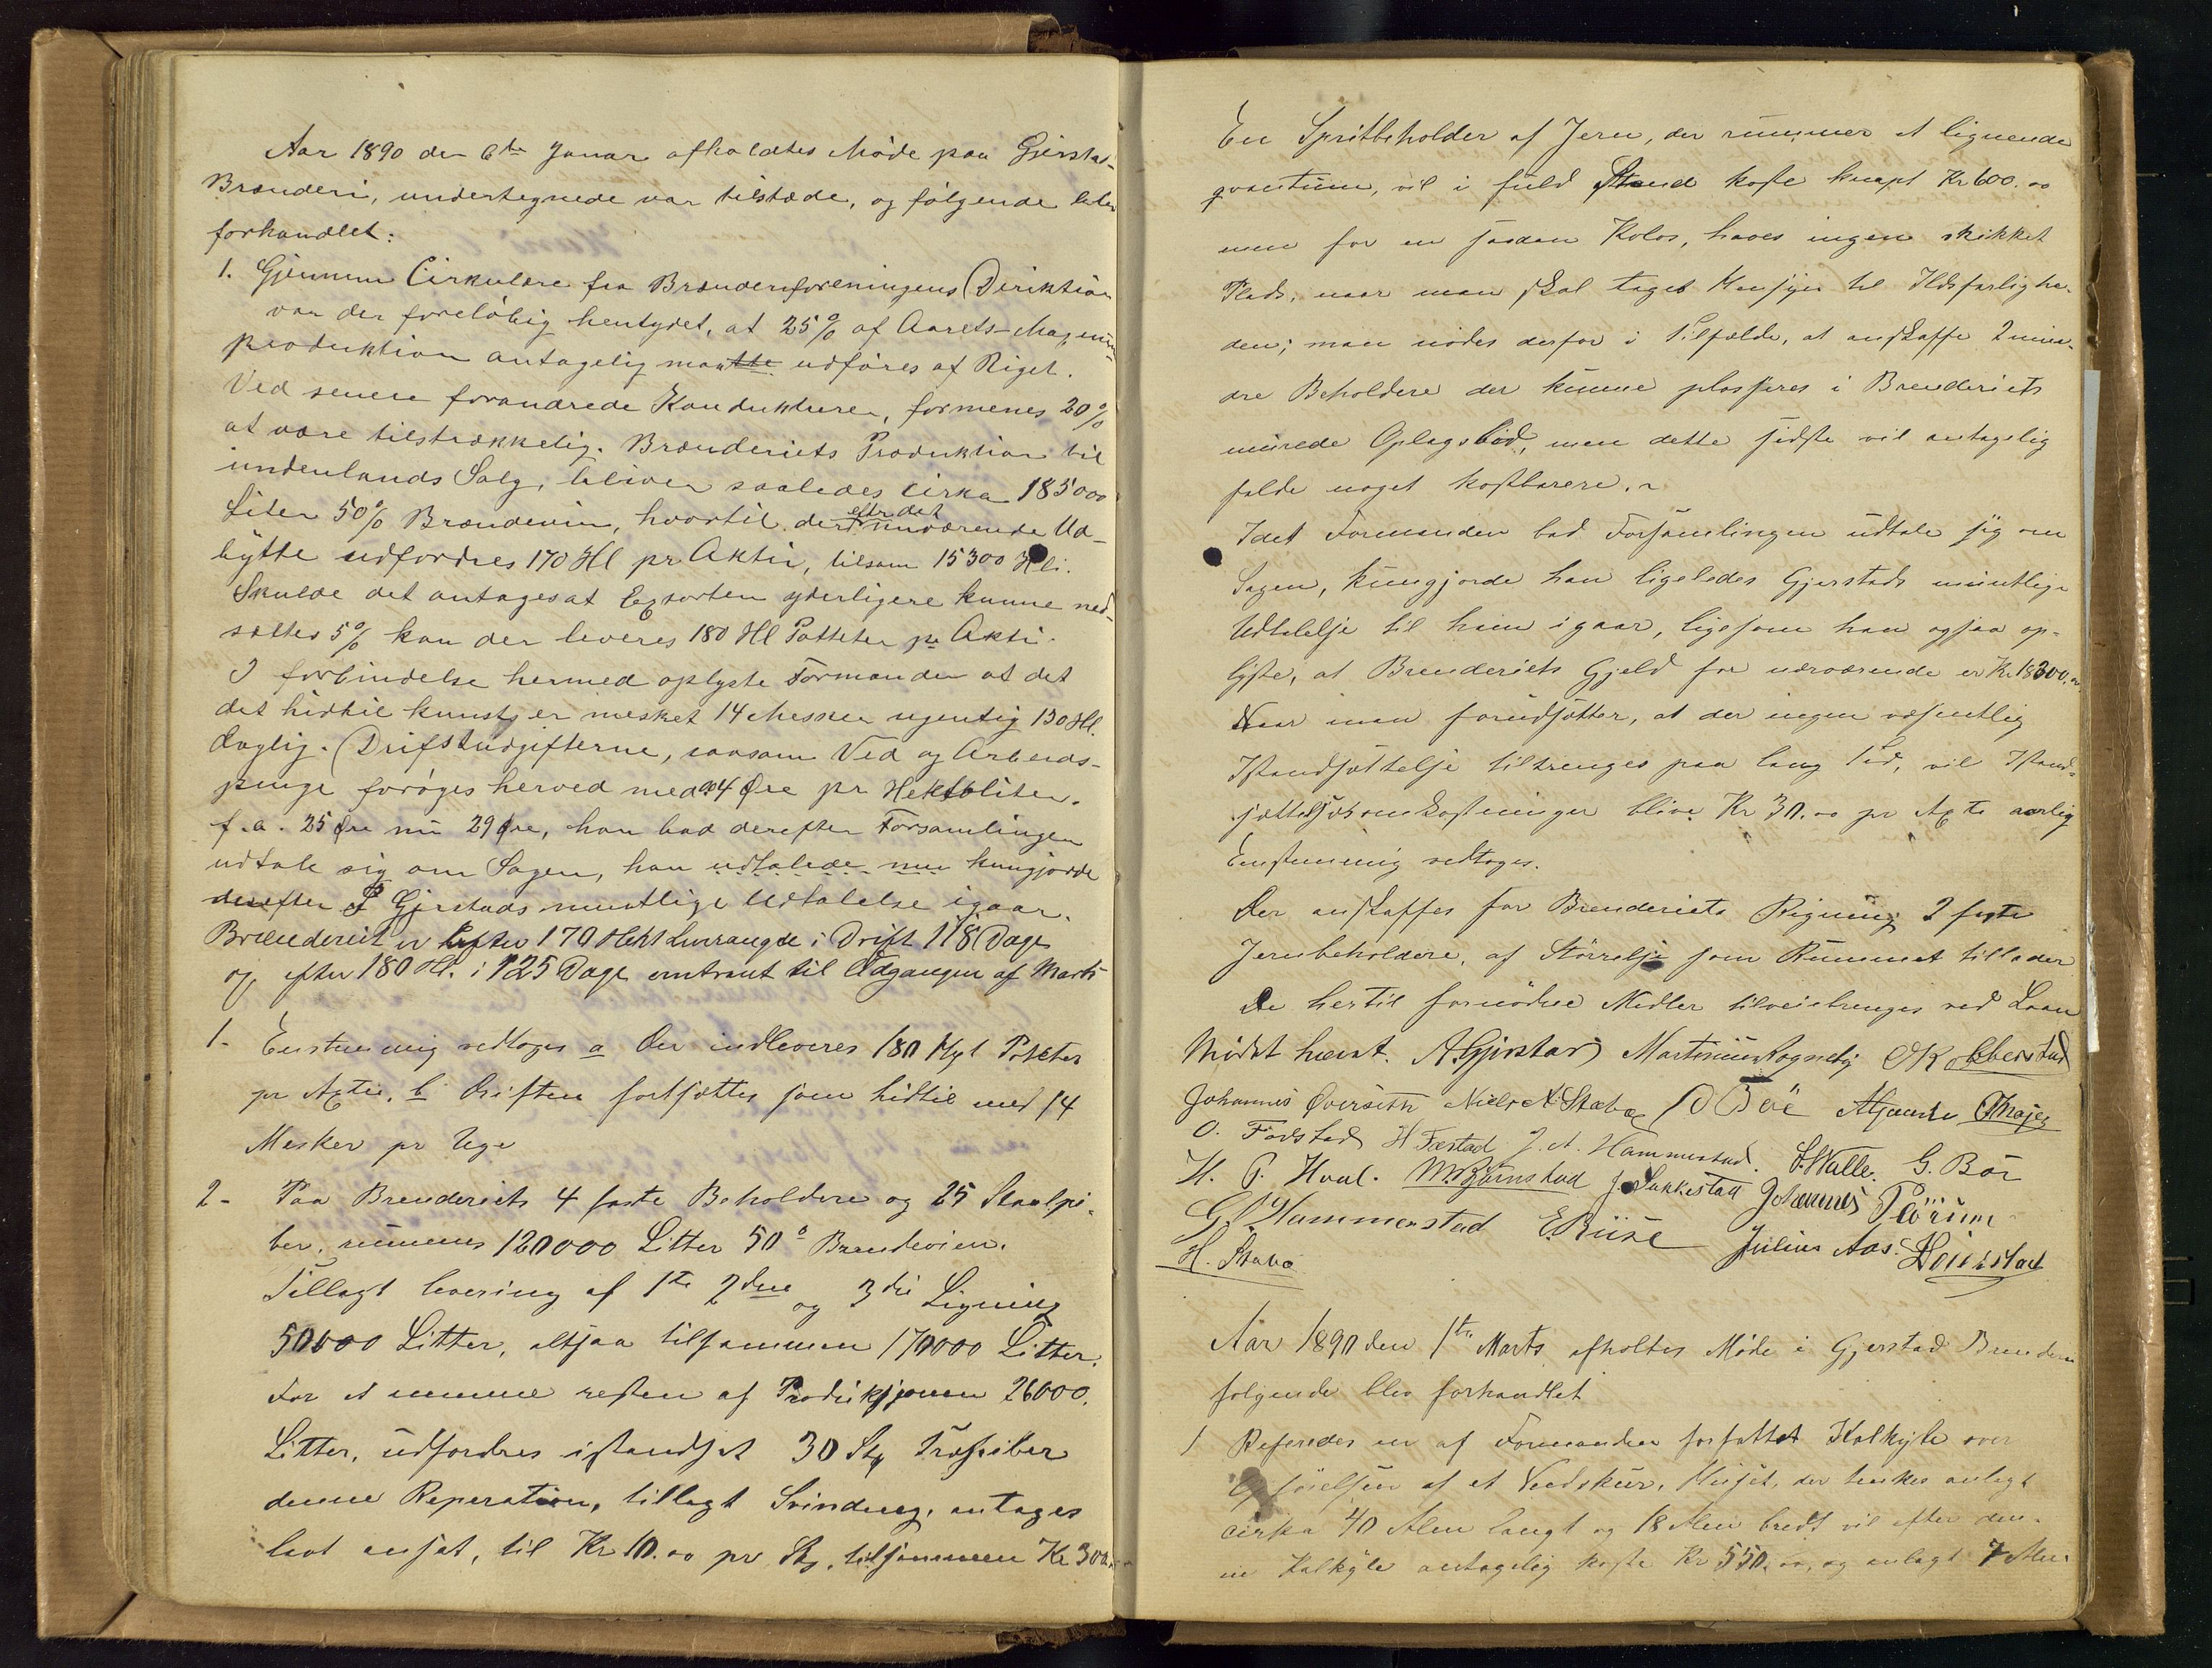 Aar 1890 den 6te Januar afholdtes Møde paa Gjerstad-
Brænderi, undertegnede var tilstæde, og følgende blev
forhandlet:
1. Gjennem Cirkulære fra Brænderiforeningens Direktion
var der foreløbig hentydet, at 25% af Aarets-
produktion antagelig maatte udføres af Riget.
Ved senere forandrede Kondukturer, formenes 20%
at være tilstrækkelig. Brænderiets Produktion til
indenlands Salg, bliver saaledes Cirka 185000
Liter 50% Brændeviin, hvortil der efter det nuværende Ud-
bytte udfordres 170 Hl pr Aktie, tilsam 15300 Hli.
Skulde det antages at Exporten yderligere kunne ned-
sættes 5% kan der leveres 180 Hl Potteter pr Akti.
I forbindelse hermed oplyste Formanden at det
det hidtil kunsts er mesket 14 Mesker ugentlig 130 Hl.
daglig. Driftsudgifterne, saasom Ved og Arbeids-
penge forøges herved med 4 Øre pr Hektoliter.
f.a. 25 Øre nu 29 Øre, han bad derefter Forsamlingen
udtale sig om Sagen, han udtalede nu kungjorde
derefter Gjerstads mundtlige Udtalelse igaar.
Brænderiet er efter 170 Hekt Leverangse i Drift 118 Dage
og efter 180 Hl. i 125 Dage omtrent til Udgangen af Marts
1. Enstemmig vedtoges a Der indleveres 180 Hgl Poteter
pr Axtie, b Driften fortsættes som hidtil med 14
Mesker pr Uge
2 - Paa Brenderiets 4 faste Beholdere og 25 Staalpi-
ber, rummes 120000 Litter 50° Brendevien.
Tillagt levering af 1te 2den og 3die Ligning
50000 Litter, altsaa tilsammen 170000 Litter.
For at rumme resten af Produksjonen 26000.
Litter, udfordres istandsat 30 Stk Træpiber
denne Reperation, tillagt Svinding, antages
lavt ansat, til Kr 10.00 pr Stk, tilsammen Kr 300.
En Spritbeholder af Jern, der rummer et lignende
qvantum, vil i fuld Stand koste knapt Kr 600.00
men for en saadan Kolos, haves ingen skikket
Plads, naar man skal taget Hensyn til Ildsfarlighe-
den; man nødes derfor i Tilfælde, at anskaffe 2 min-
dre Beholdere der kunne plasseres i Brenderiets
murede Oplagsbod, men dette sidste vil antagelig
falde noget kostbarere.
Idet Formanden bad Forsamlingen udtale sig om
Sagen, kungjorde han ligeledes Gjerstads muntlige
Udtalelse til ham igaar, ligesom han ogsaa op-
lyste, at Brenderiets Gjeld for nærværende er Kr. 18300.
Naar man forudsætter, at der ingen væsentlig
Istandsættelse tiltrenges paa lang Tid, vil Istand-
sættelsesomkostninger blive Kr 30.00 pr Axti aarlig
Enstemmig vedtoges.
Der anskaffes for Brenderiets Regning 2 faste
Jernbeholdere, af Størrelse som Rummet tillader
De hertil fornødne Midler tilveiebringes ved Laan
Mødet hævt. A. Gjerstad Martinius Sogneby
Johannes Øverseth Niels A. Staba
O. Fodstad H Fæstad J. A. Hammerstad. S. Walle. G. Bøe
H. P. Hval. M. Bjørnstad J. Sukkestad Johannes
G. Hammerstad E. Riise Julius Aas.
H. Staba
Aar 1890 den 1te Marts afholtes Møde i Gjerstad Brenderi
følgende blev forhandlet
1 Refereedes en af Formanden forfattet Kalkyle over
Opførelsen af et Vedskur. Huset, der tenkes anlagt
cirka 40 Alen langt og 18 Alen bredt vil efter den-
ne Kalkyle antagelig koste Kr 550.00, og anlagt 7 Alen